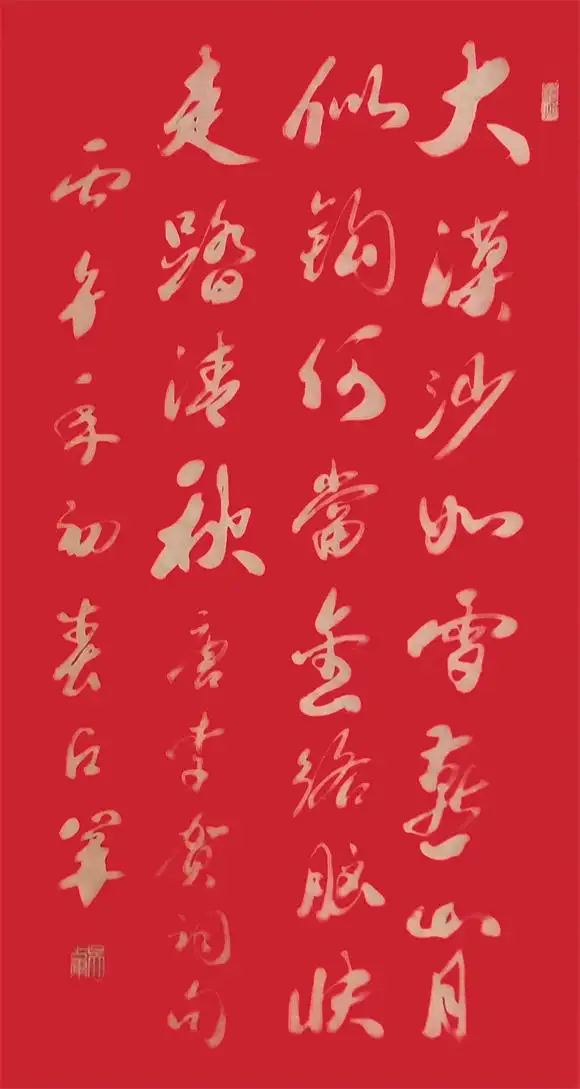 大漠沙如雪燕山月
似鈎何當金絡脑快
走踏清秋唐李贺词句
丙午年初春